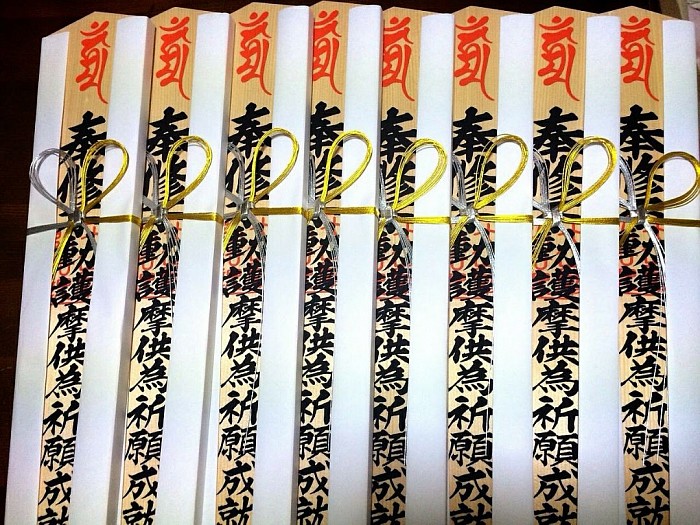 奉修動護摩供為祈願成就
奉修動護摩供為祈願成就
奉修動護摩供為祈願成就
奉修動護摩供為祈願成就
奉修動護摩供為祈願成就
奉修動護摩供為祈願成就
奉修動護摩供為祈願成就
奉修動護摩供為祈願成就